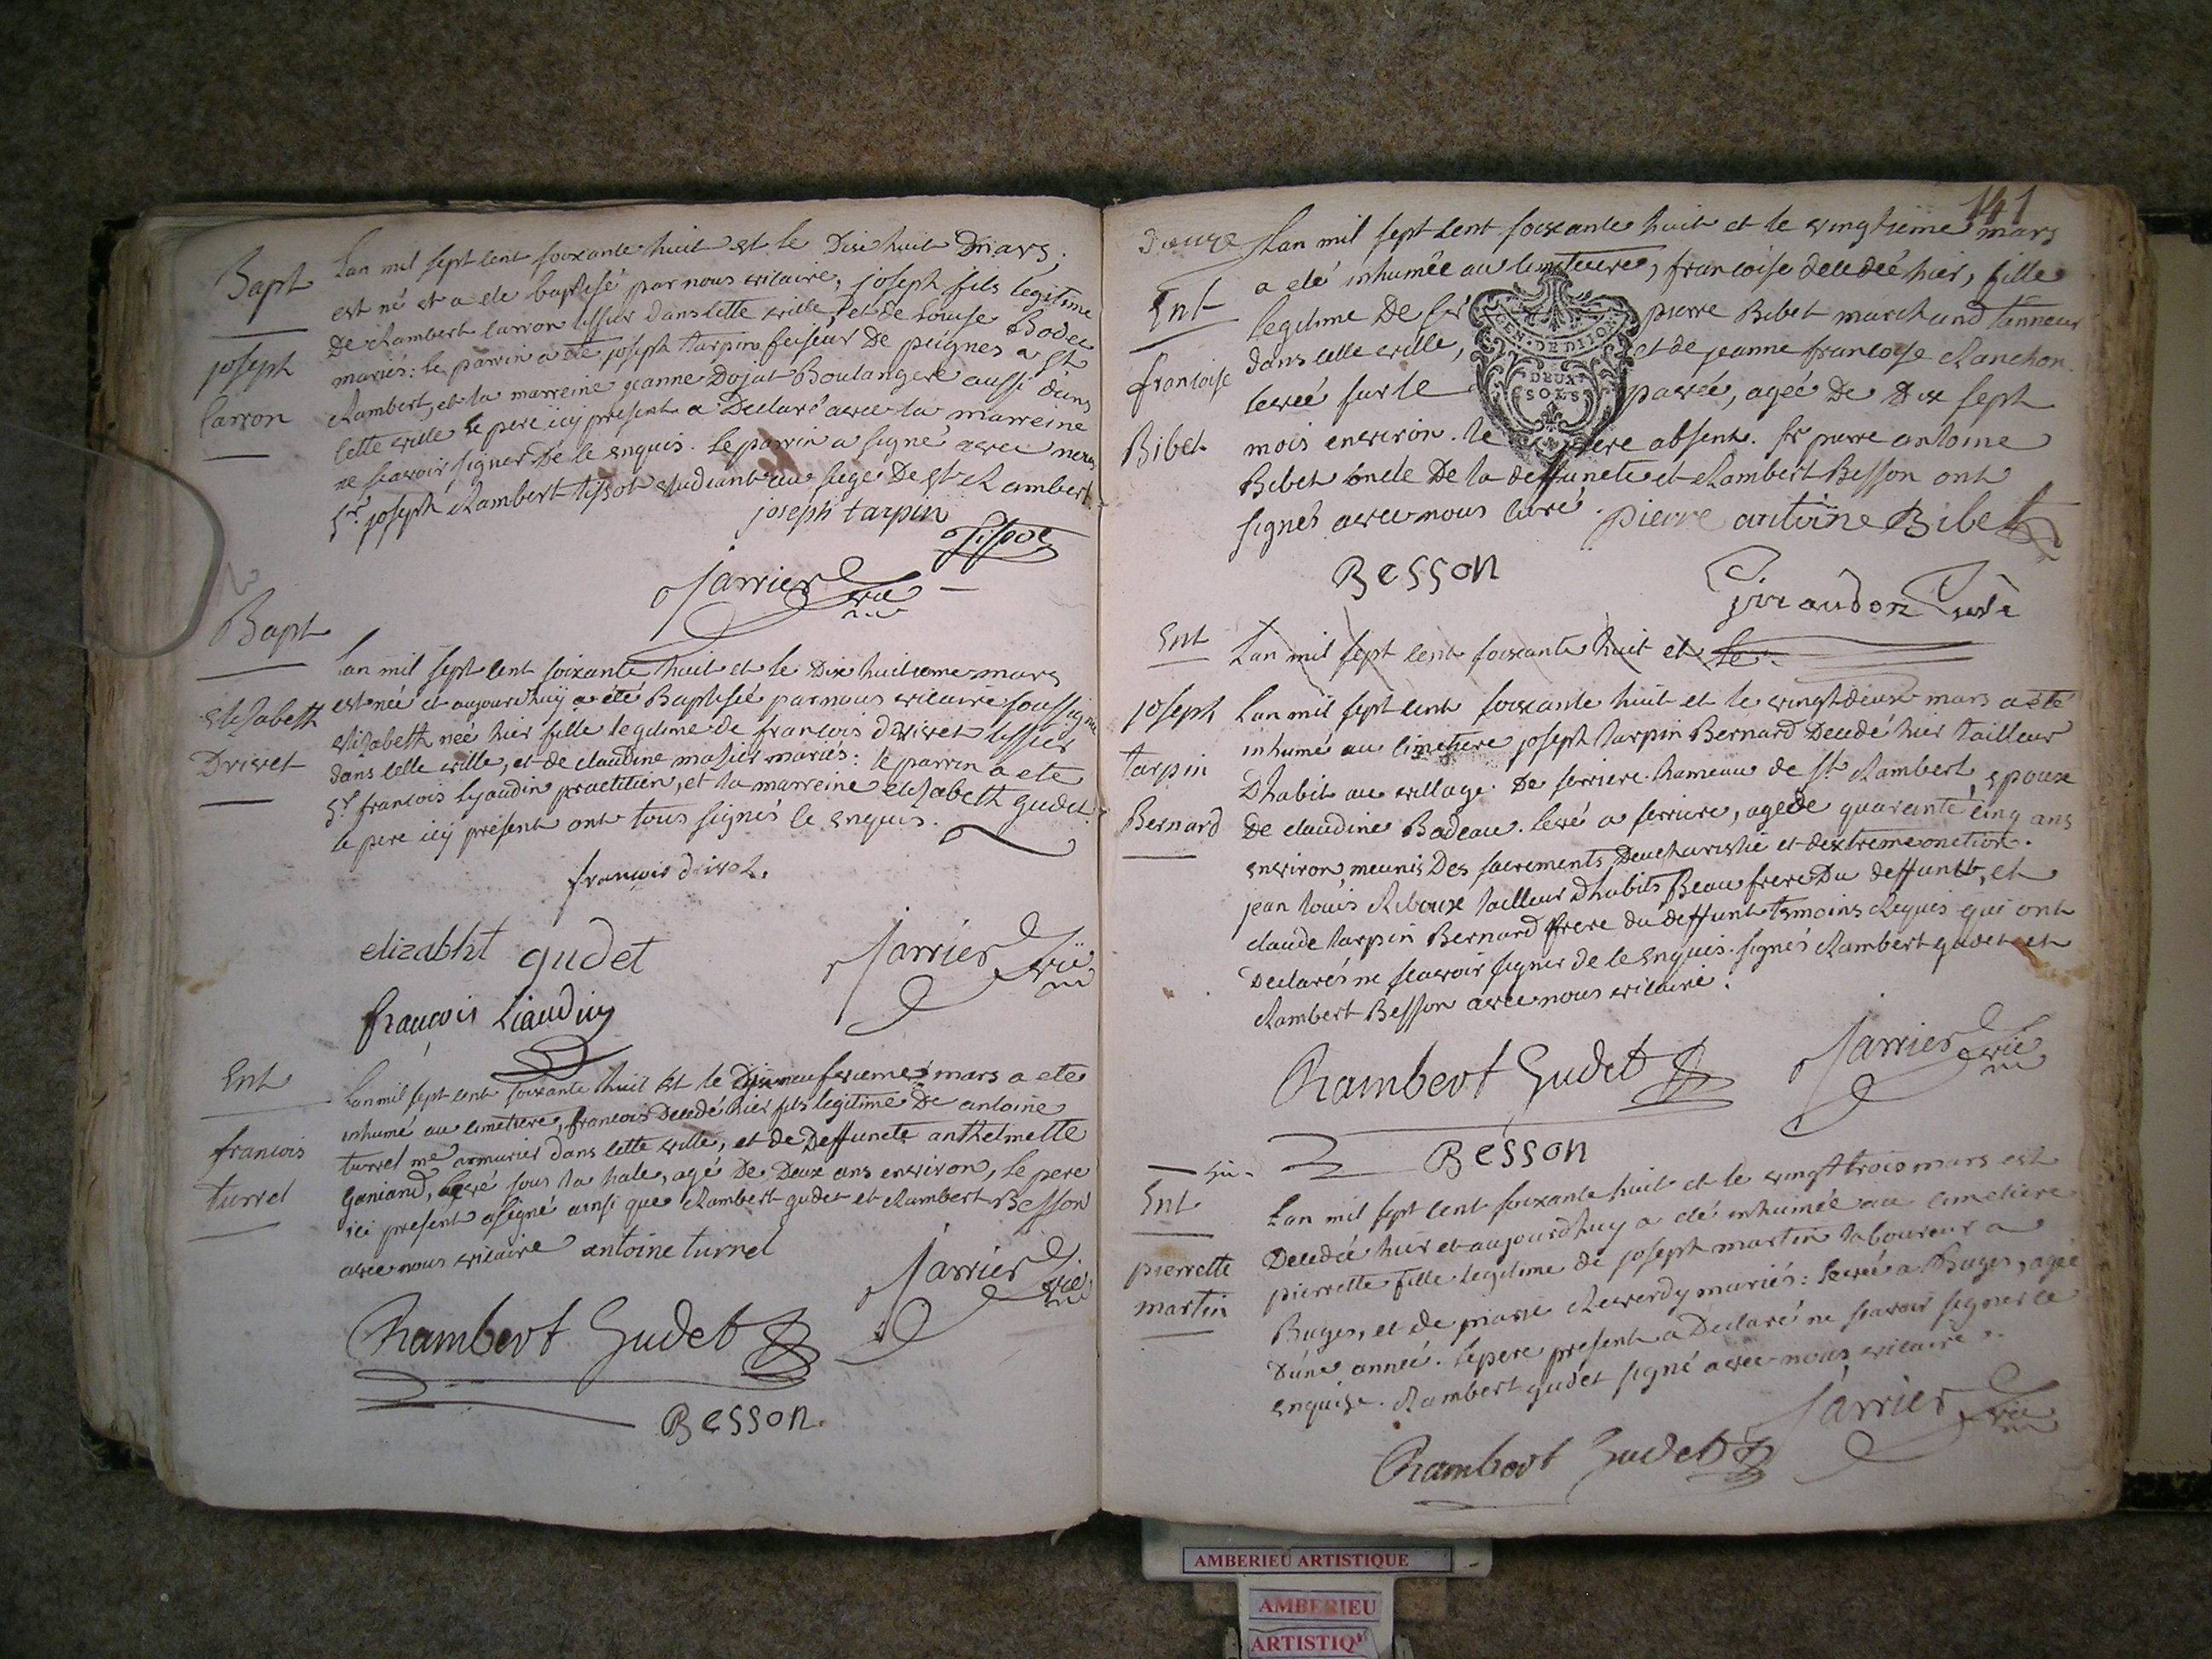 Bapt
joseph
Carron
Lan mil sept cent soixante huit et le Dix huit Mars,
est né et a ete baptisé par nous vicaire, joseph fils legitime
De Rambert Carron tissier dans cette ville, et de Louise Bodet
mariés: le parrin a ete joseph tarpin faiseur De peignes a St
Rambert, et la marreine jeanne Dojat Boulangere aussi dans
cette ville le pere icy present a Declaré avec la marreine
ne scavoir signer De ce enquis. Le parrin a signé avec nous
Sr. joseph Rambert tissot etudiant au siege De St Rambert
joseph tarpin
Tissot
Jarrier vic
Bapt
Elisabeth
Drivet
Lan mil sept cent soixante huit et le Dix huitieme mars
est née et aujourdhuy a été Baptisée par nous vicaire soussigné
Elisabeth neé hier fille legitime de francois drivet tissier
dans cette ville, et de claudine mariés: le parrin a ete
Sr. francois Lyaudin practitien, et la marreine elisabeth gudet
le pere icy présent ont tous signés de enquis.
francois drivet.
elizabht gudet
Jarrier vic
françois Liaudin
Ent
francois
turrel
Lan mil sept cent soixante huit et le Dixneufvieme mars a ete
inhumé au cimetiere, francois Decedé hier fils legitime De antoine
turrel me armurier dans cette ville, et de Deffuncte anthelmette
Ganiand, levé sous la hale, agé De Deux ans environ, le pere
ici present a signé ainsi que Rambert gudet et Rambert Besson
avec nous vicaire antoine turrel
Jarrier vic
Rambert Gudet
Besson.
141
Douze
Ent
francoise
Bibet
Lan mil sept cent soixante huit et le vingtieme mars
a eté inhumée au cimetiere, francoise decedeé hier, fille
legitime De Sr pierre Bibet marchand tanneur
dans cette ville, et de jeanne francoise Ranchon.
levée sur le pavée, ageé De Dix sept
mois environ. le pere absent. Sr pierre antoine
Bibet oncle De la deffuncte et Rambert Besson ont
signés avec nous curé.
GEN. DE DIJON
DEUX
SOLS
pierre antoine Bibet
Besson
Giraudon Curé
Ent
Lan mil sept cent soixante huit et le
joseph
tarpin
Bernard
Lan mil sept cent soixante huit et le vingt deux mars a été
inhumé au cimetiere joseph tarpin Bernard Decedé hier tailleur
Dhabit au village De serriere hameau de St. Rambert, epoux
De claudine Badeau. levé a serriere, agé de quarante cinq ans
environ, meunis Des sacrements Deucharistie et dextremeonction.
jean louis Riboux tailleur Dhabits Beau frere Du deffunct, et
claude tarpin Bernard frere du deffunt temoins Requis qui ont
Declarés ne scavoir signer de ce Enquis. signés Rambert gudet et
Rambert Besson avec nous vicaire.
Rambert Gudet
Jarrier vic
Besson
Ent
pierrette
martin
Lan mil sept cent soixante huit et le vingt trois mars est
Decedée hier et aujourdhuy a eté inhumée au cimetiere
pierrette fille legitime de joseph martin laboureur a
Buges, et de Reverdy mariés: levée a Buges, agée
D'une année. le pere present a Declaré ne scavoir signer ce
enquise. Rambert gudet signé avec nous vicaire.
Jarrier vic
Rambert Gudet
AMBERIEU ARTISTIQUE
AMBERIEU
ARTISTIQ